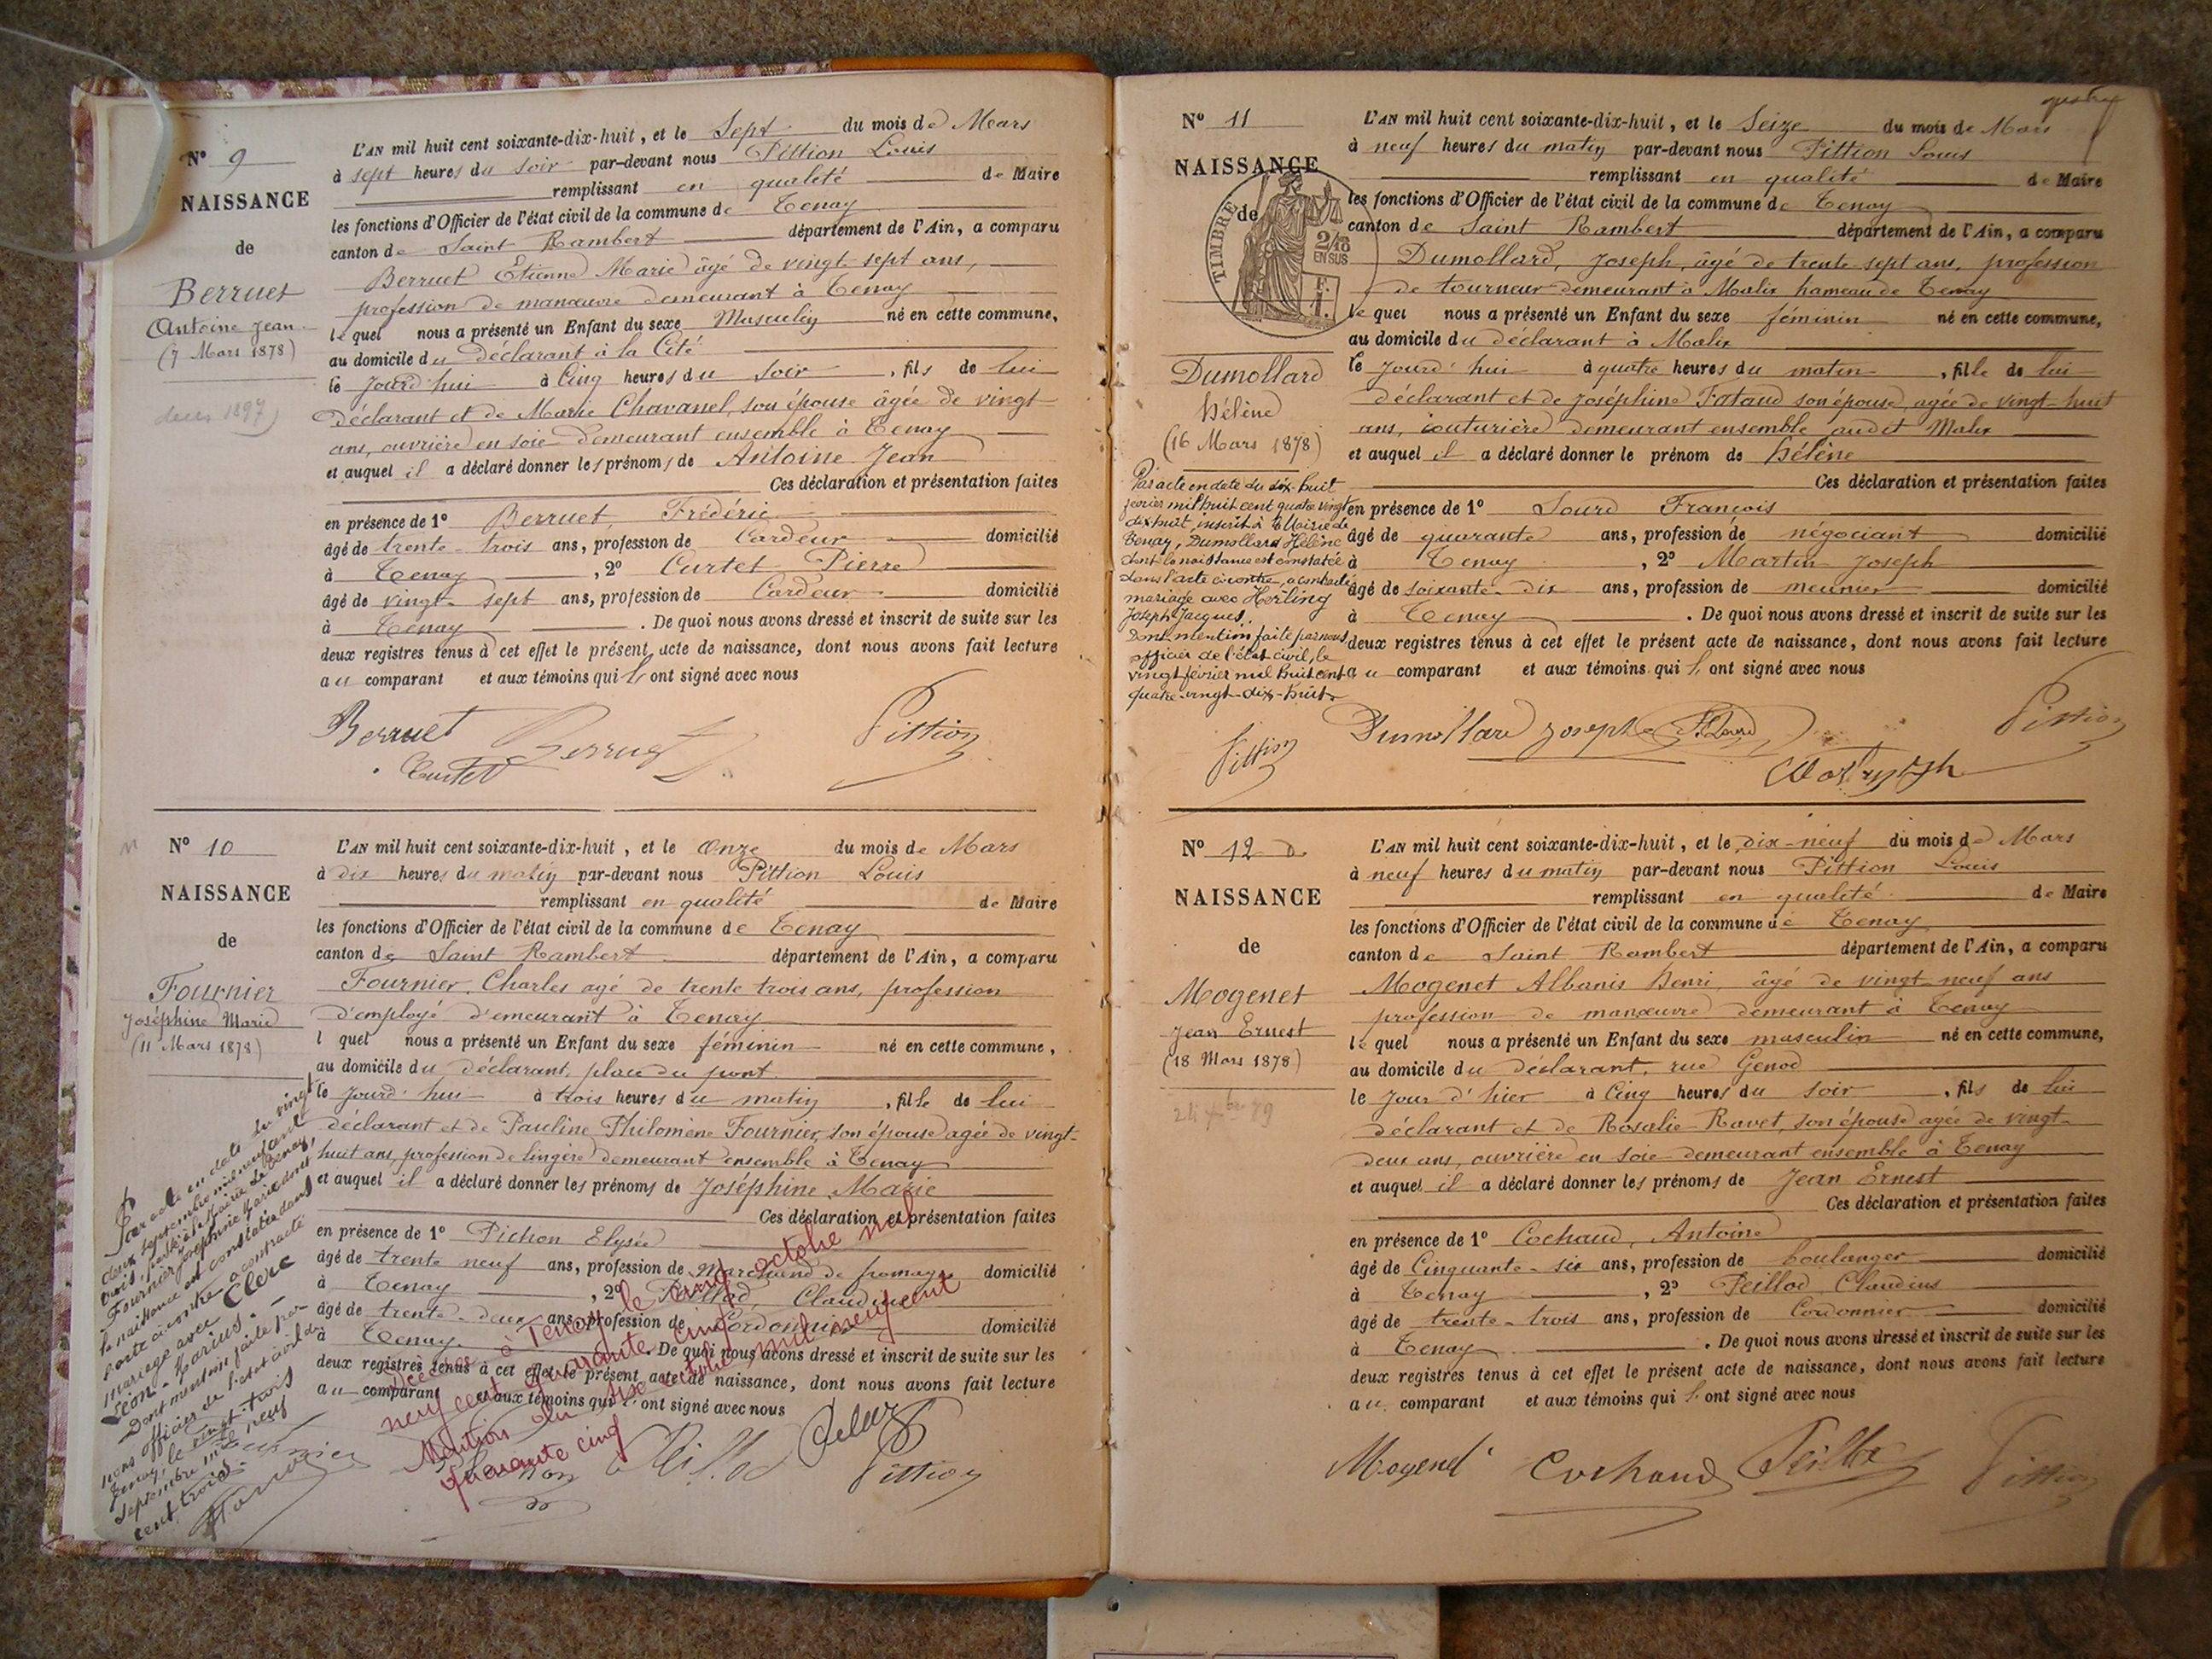 Nº 9
NAISSANCE
de
Berruet
Antoine Jean
(7 Mars 1878)
1897
L'AN mil huit cent soixante-dix-huit, et le Sept du mois de Mars
à sept heures du soir par-devant nous Pittion Louis
remplissant en qualité de Maire
les fonctions d'Officier de l'état civil de la commune de Tenay
canton de Saint Rambert département de l'Ain, a comparu
Berruet Etienne Marie âgé de vingt sept ans,
profession de manœuvre demeurant à Tenay
lequel nous a présenté un Enfant du sexe Masculin né en cette commune,
au domicile du déclarant à la Cité
le jourd'hui à Cinq heures du soir, fils de lui
déclarant et de Marie Chavanel, son épouse âgée de vingt
ans, ouvrière en soie demeurant ensemble à Tenay
et auquel il a déclaré donner les prénoms de Antoine Jean
Ces déclaration et présentation faites
en présence de 1º Berruet, Frédéric
âgé de trente-trois ans, profession de Cardeur domicilié
à Tenay, 2º Curtet Pierre
âgé de vingt-sept ans, profession de Cardeur domicilié
à Tenay. De quoi nous avons dressé et inscrit de suite sur les
deux registres tenus à cet effet le présent acte de naissance, dont nous avons fait lecture
au comparant et aux témoins qui l'ont signé avec nous
Berruet Berruet Pittion
Curtet
Nº 10
NAISSANCE
de
Fournier
Joséphine Marie
(11 Mars 1878)
Par acte en date du vingt
deux septembre mil neuf cent
trois, inscrit à la Mairie de Tenay,
Fournier Joséphine Marie dont
la naissance est constatée dans
l'acte ci-contre a contracté
mariage avec Clerc
Léon-Marius.-
Dont mention faite par
nous officier de l'état civil de
Tenay, le vingt-trois
septembre mil neuf
cent trois.
L'AN mil huit cent soixante-dix-huit, et le Onze du mois de Mars
à dix heures du matin par-devant nous Pittion Louis
remplissant en qualité de Maire
les fonctions d'Officier de l'état civil de la commune de Tenay
canton de Saint Rambert département de l'Ain, a comparu
Fournier, Charles agé de trente trois ans, profession
d'employé d'emeurant à Tenay
l quel nous a présenté un Enfant du sexe féminin né en cette commune,
au domicile du déclarant, place du pont
le jourd'hui à trois heures du matin, fille de lui
déclarant et de Pauline Philomène Fournier, son épouse agée de vingt-
huit ans, profession de lingère demeurant ensemble à Tenay
et auquel il a déclaré donner les prénoms de Joséphine Marie
Ces déclaration et présentation faites
en présence de 1º Pichon Elysée
âgé de trente neuf ans, profession de Marchand de fromages domicilié
à Tenay, 2º Peillod, Claudius
âgé de trente-deux ans, profession de Cordonnier domicilié
à Tenay. De quoi nous avons dressé et inscrit de suite sur les
deux registres tenus à cet effet le présent acte de naissance, dont nous avons fait lecture
au comparant et aux témoins qui l'ont signé avec nous
Décédée à Tenay le cinq octobre mil
neuf cent quarante cinq
Mention du six octobre mil neuf cent
quarante cinq
Fournier Pichon Peillod Pittion
Nº 11
NAISSANCE
de
TIMBRE
2/10
EN SUS
Dumollard
Hélène
(16 Mars 1878)
Par acte en date du dix-huit
février mil huit cent quatre vingt
dix huit, inscrit à la Mairie de
Tenay, Dumollard Hélène
dont la naissance est constatée
dans l'acte ci contre, a contracté
mariage avec Herling
Joseph Jacques.
Dont mention faite par nous
officier de l'état civil, le
vingt février mil huit cent
quatre-vingt-dix-huit
Pittion
L'AN mil huit cent soixante-dix-huit, et le Seize du mois de Mars
à neuf heures du matin par-devant nous Pittion Louis
remplissant en qualité de Maire
les fonctions d'Officier de l'état civil de la commune de Tenay
canton de Saint Rambert département de l'Ain, a comparu
Dumollard, Joseph, âgé de trente-sept ans, profession
de tourneur demeurant à Malix hameau de Tenay
lequel nous a présenté un Enfant du sexe féminin né en cette commune,
au domicile du déclarant à Malix
le jourd'hui à quatre heures du matin, fille de lui
déclarant et de Joséphine Fataud son épouse, agée de vingt-huit
ans, couturière demeurant ensemble audit Malix
et auquel il a déclaré donner le prénom de Hélène
Ces déclaration et présentation faites
en présence de 1º Sourd François
âgé de quarante ans, profession de négociant domicilié
à Tenay, 2º Martin Joseph
âgé de soixante-dix ans, profession de meunier domicilié
à Tenay. De quoi nous avons dressé et inscrit de suite sur les
deux registres tenus à cet effet le présent acte de naissance, dont nous avons fait lecture
au comparant et aux témoins qui l'ont signé avec nous
Dumollard Joseph Pittion
Nº 12
NAISSANCE
de
Mogenet
Jean Ernest
(18 Mars 1878)
L'AN mil huit cent soixante-dix-huit, et le dix-neuf du mois de Mars
à neuf heures du matin par-devant nous Pittion Louis
remplissant en qualité de Maire
les fonctions d'Officier de l'état civil de la commune de Tenay
canton de Saint Rambert département de l'Ain, a comparu
Mogenet Albanis Henri, âgé de vingt neuf ans
profession de manœuvre demeurant à Tenay
lequel nous a présenté un Enfant du sexe masculin né en cette commune,
au domicile du déclarant, rue Genod
le jour d'hier à Cinq heures du soir, fils de lui
déclarant et de Rosalie Ravet, son épouse agée de vingt-
deux ans, ouvrière en soie demeurant ensemble à Tenay
et auquel il a déclaré donner les prénoms de Jean Ernest
Ces déclaration et présentation faites
en présence de 1º Cochaud, Antoine
âgé de Cinquante-six ans, profession de boulanger domicilié
à Tenay, 2º Peillod, Claudius
âgé de trente-trois ans, profession de Cordonnier domicilié
à Tenay. De quoi nous avons dressé et inscrit de suite sur les
deux registres tenus à cet effet le présent acte de naissance, dont nous avons fait lecture
au comparant et aux témoins qui l'ont signé avec nous
Mogenet Cochaud Peillod Pittion